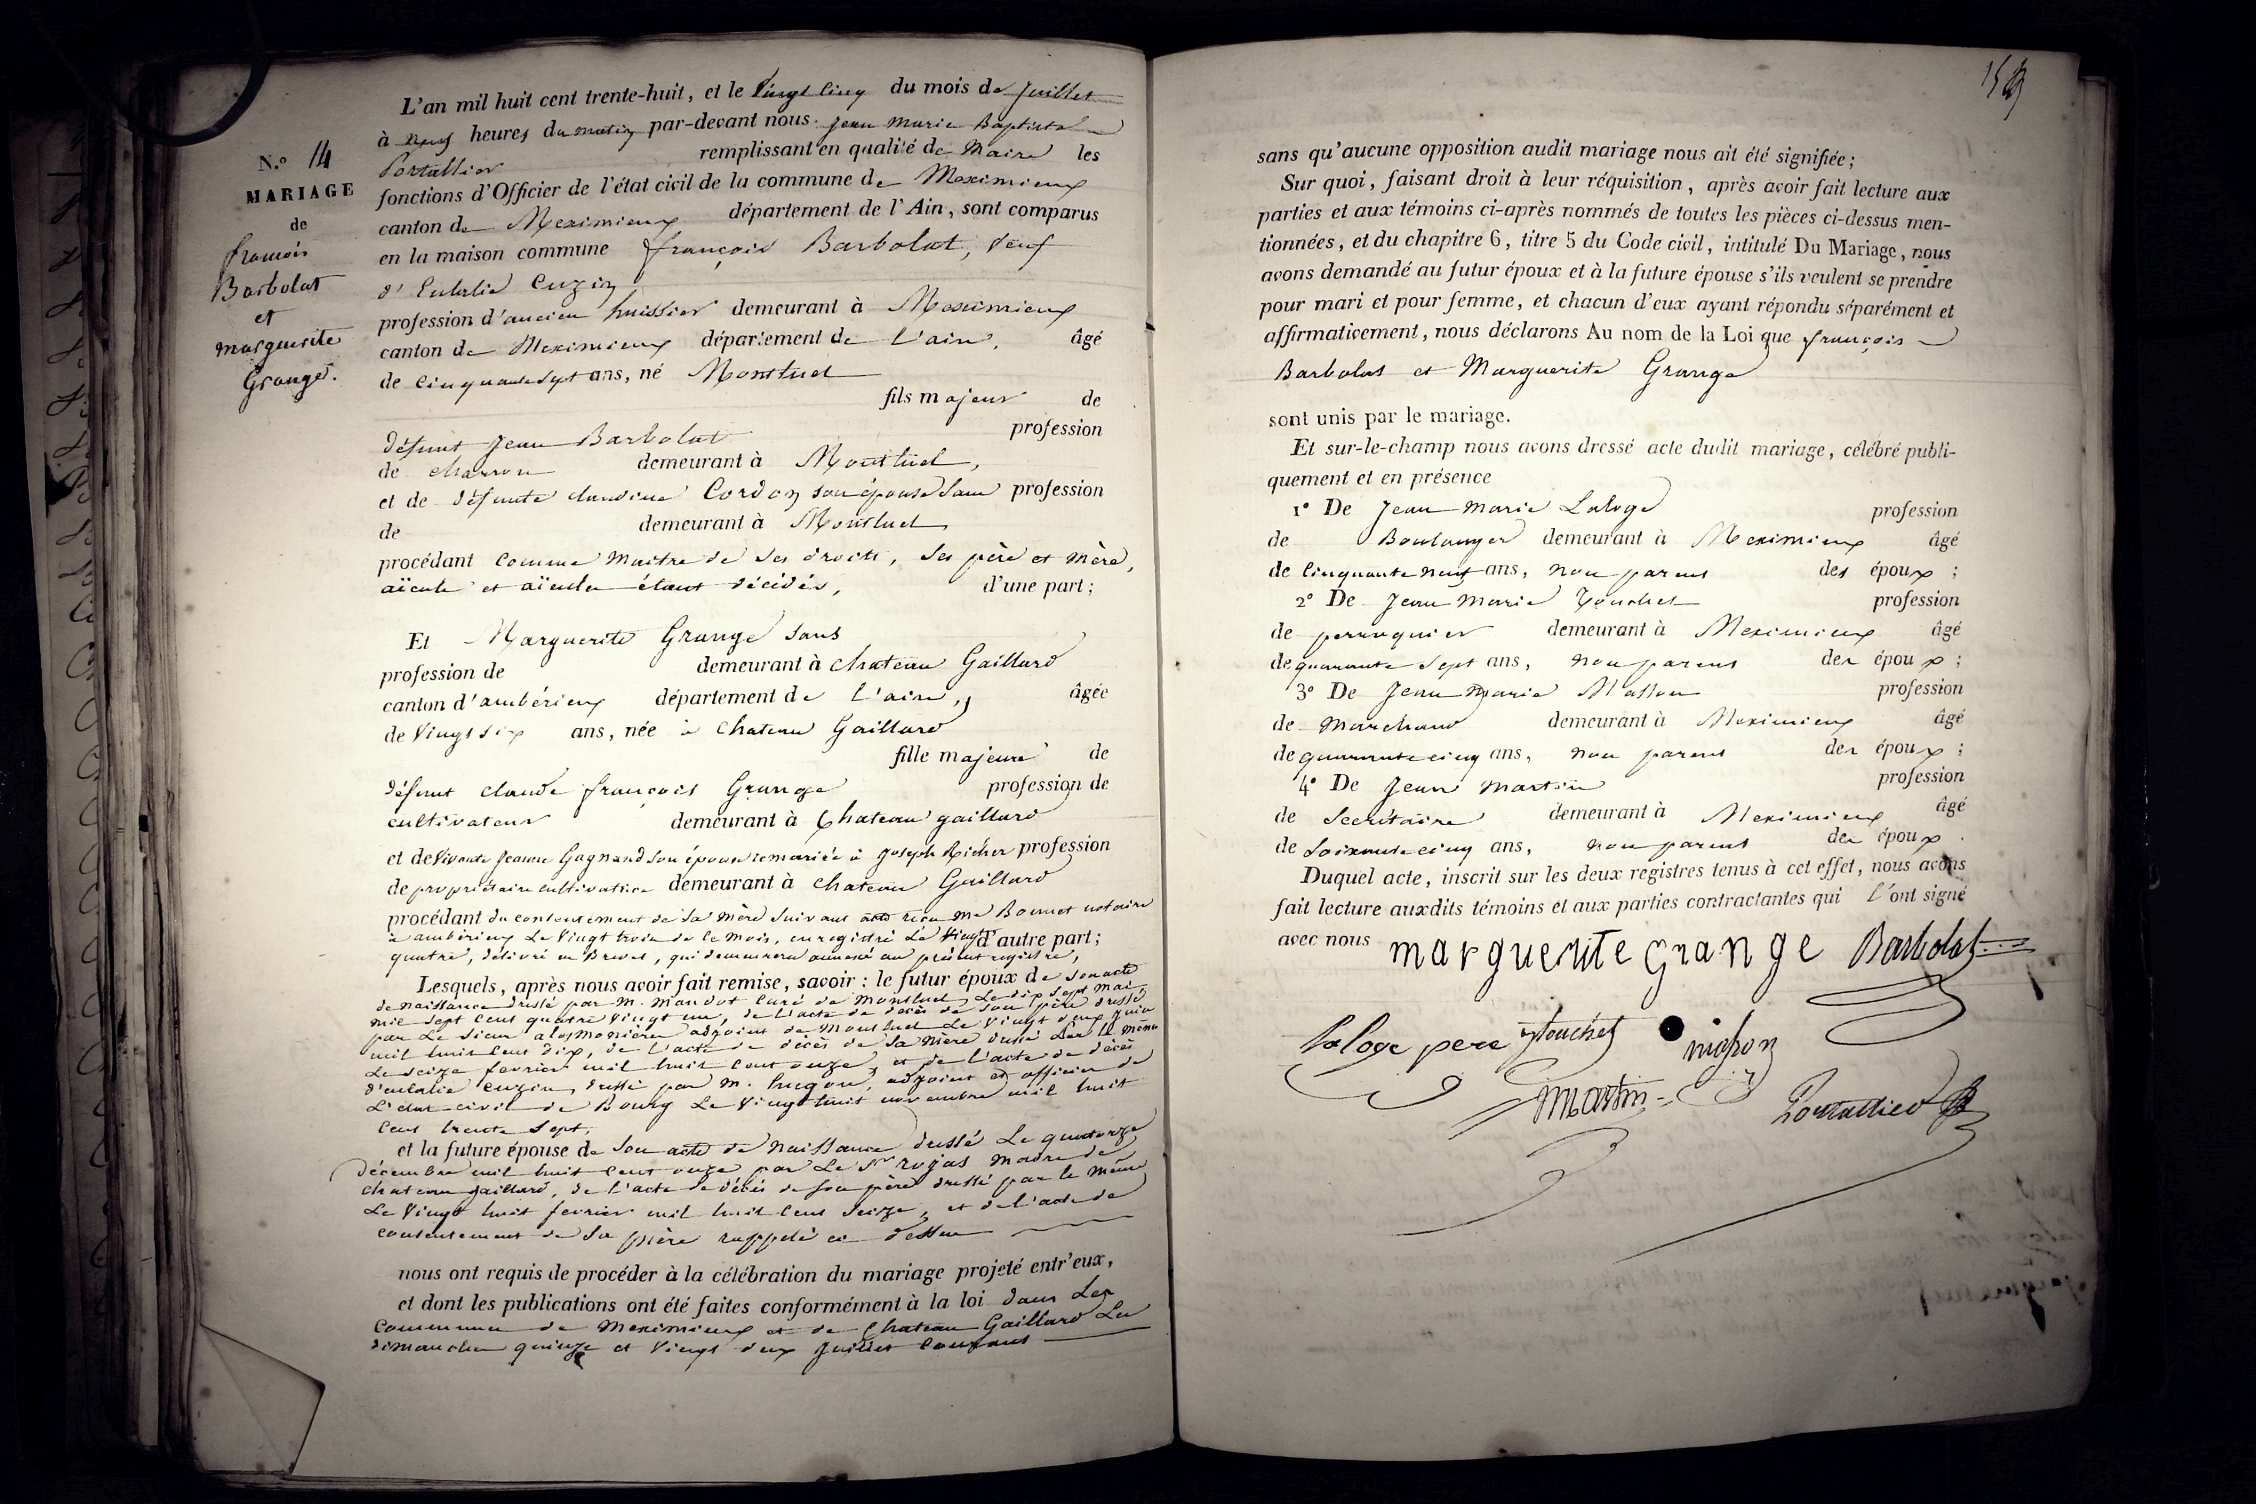 L'an mil huit cent trente-huit, et le Vingt Cinq du mois de Juillet
à neuf heures du matin par-devant nous Jean Marie Baptiste
Portallier remplissant en qualité de Maire les
fonctions d'Officier de l'état civil de la commune de Meximieux
canton de Meximieux département de l'Ain, sont comparus
en la maison commune françois Barbolat, Veuf
d'Eulalie Cuzin
profession d'ancien huissier demeurant à Meximieux
canton de Meximieux département de l'ain, âgé
de Cinquante sept ans, né Montluel
fils majeur de
défunt Jean Barbolat profession
de charron demeurant à Montluel,
et de défunte claudine Cordon son épouse Sans profession
de demeurant à Montluel
procédant comme Maitre de ses droits, ses père et mère,
aïeule et aïeules étant décédés, d'une part;
N.° 14
MARIAGE
de
françois
Barbolat
et
marguerite
Grange.
Et Marguerite Grange sans
profession de demeurant à chateau Gaillard
canton d'ambérieux département de l'ain, âgée
de Vingt six ans, née à chateau Gaillard
fille majeure de
défunt claude françois Grange profession de
cultivateur demeurant à Chateau gaillard
et de Vivante Jeanne Gagnand son épouse remariée à Joseph Richer profession
de propriétaire cultivatrice demeurant à chateau Gaillard
procédant du consentement de sa mère suivant acte reçu Me Bonnet notaire
à ambérieux Le Vingt trois de ce mois, enregistré Le Vingt d'autre part;
quatre, délivré en Brevet, qui demeurera annexé au présent registre,
Lesquels, après nous avoir fait remise, savoir: le futur époux de son acte
de naissance dressé par M. Mandot Curé de Montluel, Le dix sept Mai
mil sept cent quatre Vingt un, de l'acte de décès de son père dressé
par Le Sieur adjoint de Montluel Le Vingt deux juin
mil huit cent dix, de l'acte de décès de sa Mère dressé par le même
Le seize fevrier mil huit cent onze, et de l'acte de décès
d'eulalie Cuzin, dressé par M. hugon, adjoint et officier de
L'état-civil de Bourg Le Vingt huit novembre mil huit
Cent trente sept.
et la future épouse de son acte de Naissance dressé Le quatorze
décembre mil huit Cent onze par Le Sr rojas Maire de
Chateau gaillard, de l'acte de décès de son père dressé par le même
Le Vingt huit fevrier mil huit Cent Seize, et de l'acte de
consentement de sa mère rappelé ci dessus
nous ont requis de procéder à la célébration du mariage projeté entr'eux,
et dont les publications ont été faites conformément à la loi dans Les
Communes de Meximieux et de Chateau Gaillard Les
dimanches quinze et Vingt deux Juillet Courant
sans qu'aucune opposition audit mariage nous ait été signifiée;
Sur quoi, faisant droit à leur réquisition, après avoir fait lecture aux
parties et aux témoins ci-après nommés de toutes les pièces ci-dessus men-
tionnées, et du chapitre 6, titre 5 du Code civil, intitulé Du Mariage, nous
avons demandé au futur époux et à la future épouse s'ils veulent se prendre
pour mari et pour femme, et chacun d'eux ayant répondu séparément et
affirmativement, nous déclarons Au nom de la Loi que françois
Barbolat et Marguerite Grange
sont unis par le mariage.
Et sur-le-champ nous avons dressé acte dudit mariage, célébré publi-
quement et en présence
1° De Jean Marie Laloge profession
de Boulanger demeurant à Meximieux âgé
de Cinquante neuf ans, non parent des époux;
2° De Jean Marie Touchet profession
de perruquier demeurant à Meximieux âgé
de quarante sept ans, non parent des époux;
3° De Jean Marie profession
de Marchand demeurant à Meximieux âgé
de quarante cinq ans, non parent des époux;
4° De Jean Martin profession
de Secrétaire demeurant à Meximieux âgé
de Soixante cinq ans, non parent des époux.
Duquel acte, inscrit sur les deux registres tenus à cet effet, nous avons
fait lecture auxdits témoins et aux parties contractantes qui l'ont signé
avec nous marguerite Grange Barbolat
laloge pere touchet
Martin Portallier